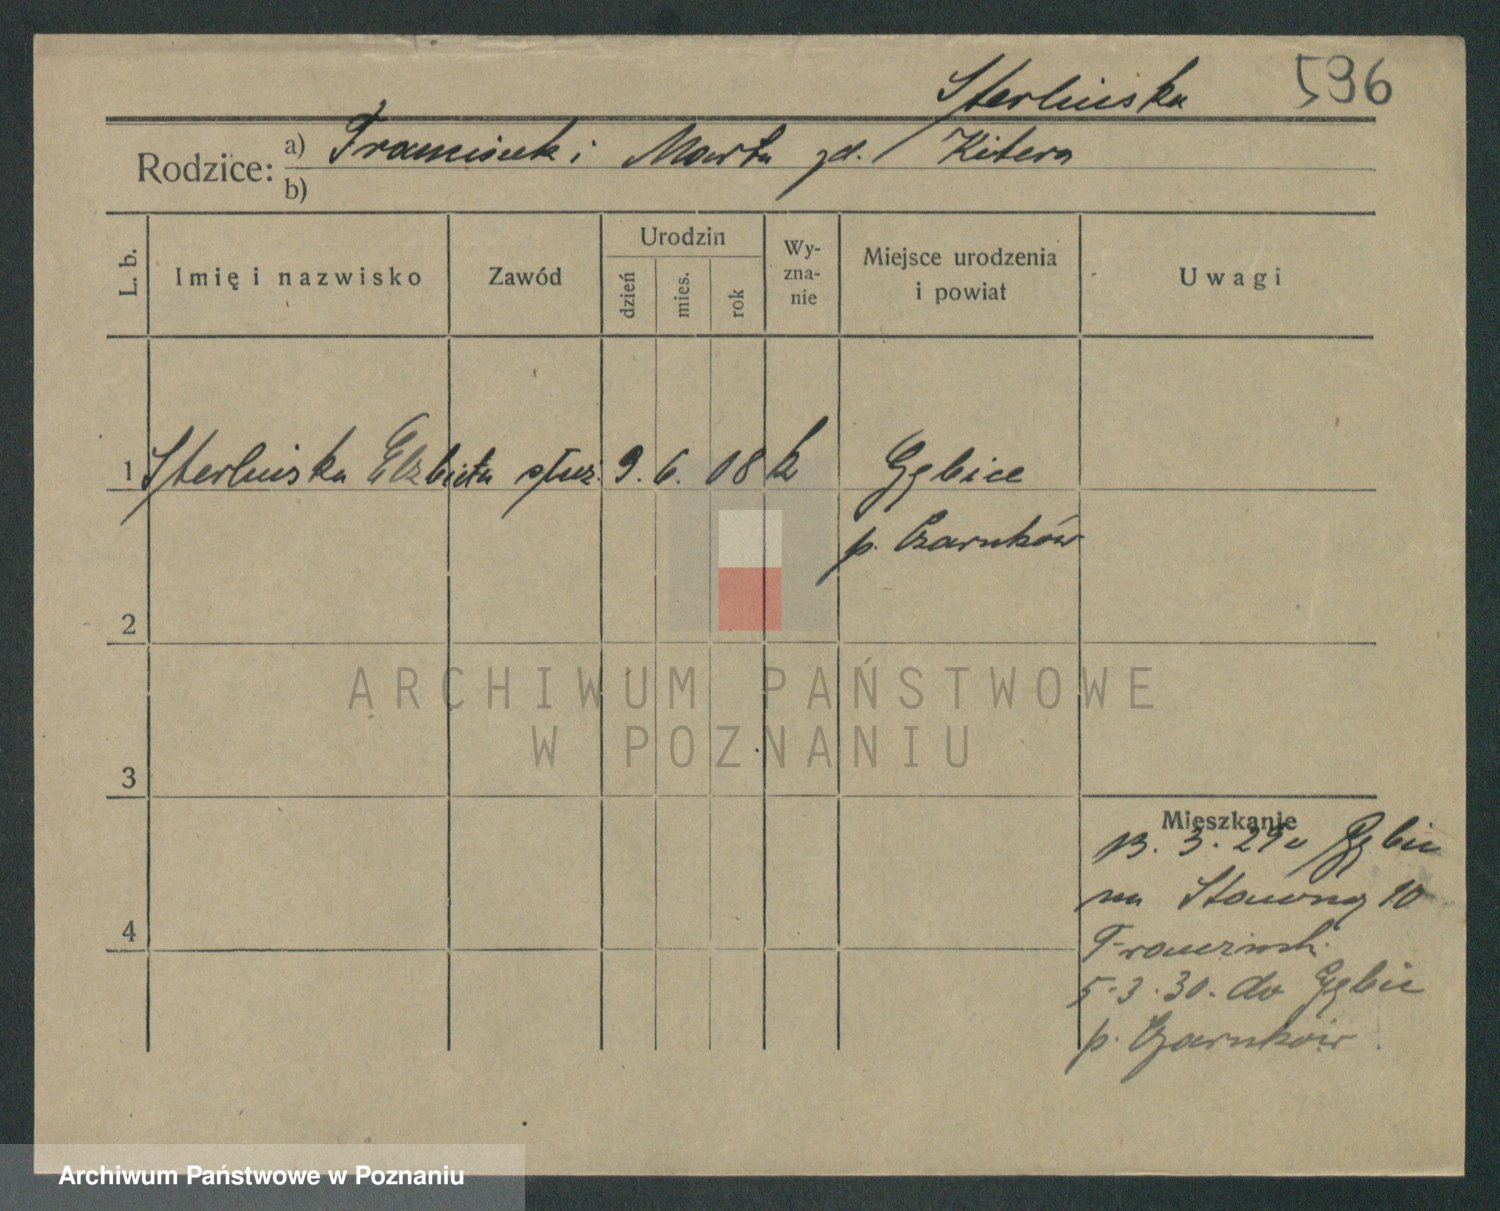 596
Sterlinska
Rodzice: a) Franciszek i Marta zd. Kitera
b)
L. b.
Imię i nazwisko
Zawód
Urodzin
dzień
mies.
rok
Wy-
zna-
nie
Miejsce urodzenia
i powiat
Uwagi
1 Sterlinska Elzbieta służ. 9. 6. 08 k Gębice
p. Czarnków
2
3
4
Mieszkanie
13. 3. 29 Gębic
na Stawną 10
5.3.30. do Gębic
p. Czarnków
ARCHIWUM PAŃSTWOWE
W POZNANIU
Archiwum Państwowe w Poznaniu